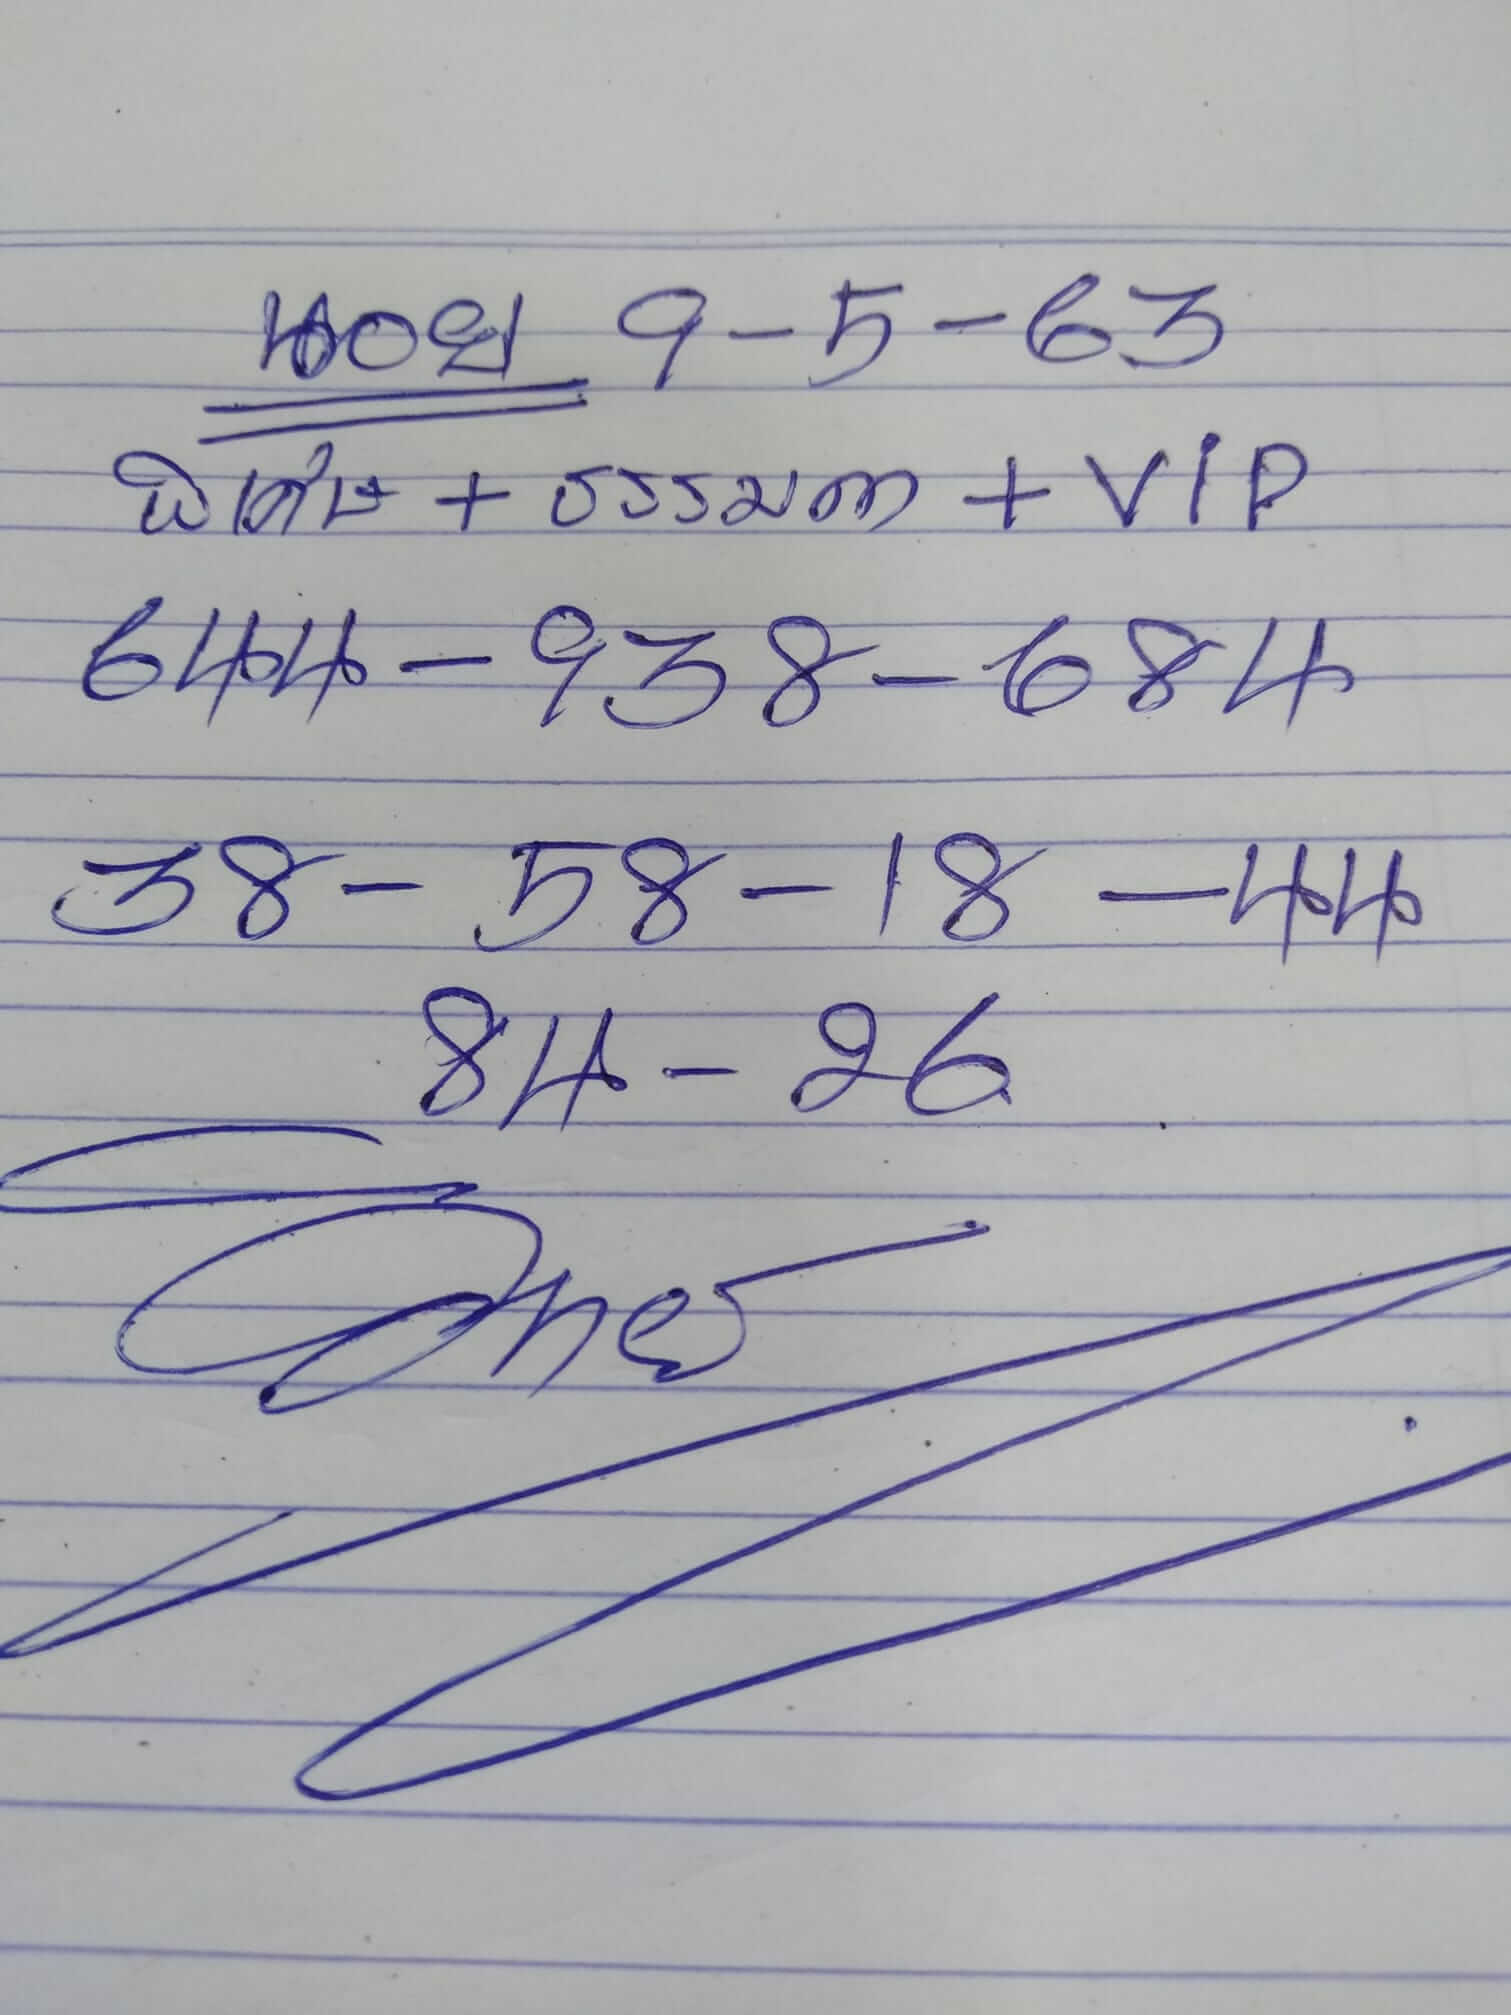 นอย 9-5-63
พิเศษ + ธรรมดา + ViP
644-938-684
38-58-18-44
84-26